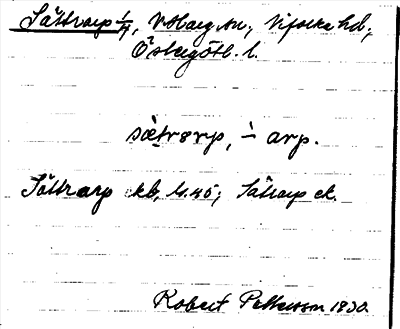 Sättrarp 1/4, Viby sn., Vifolka hd.,
Östergötl. l.
sætrarp, -̀ arp.
Sättrarp kb, Sättrarp ek.
Robert Pettersson 1930.